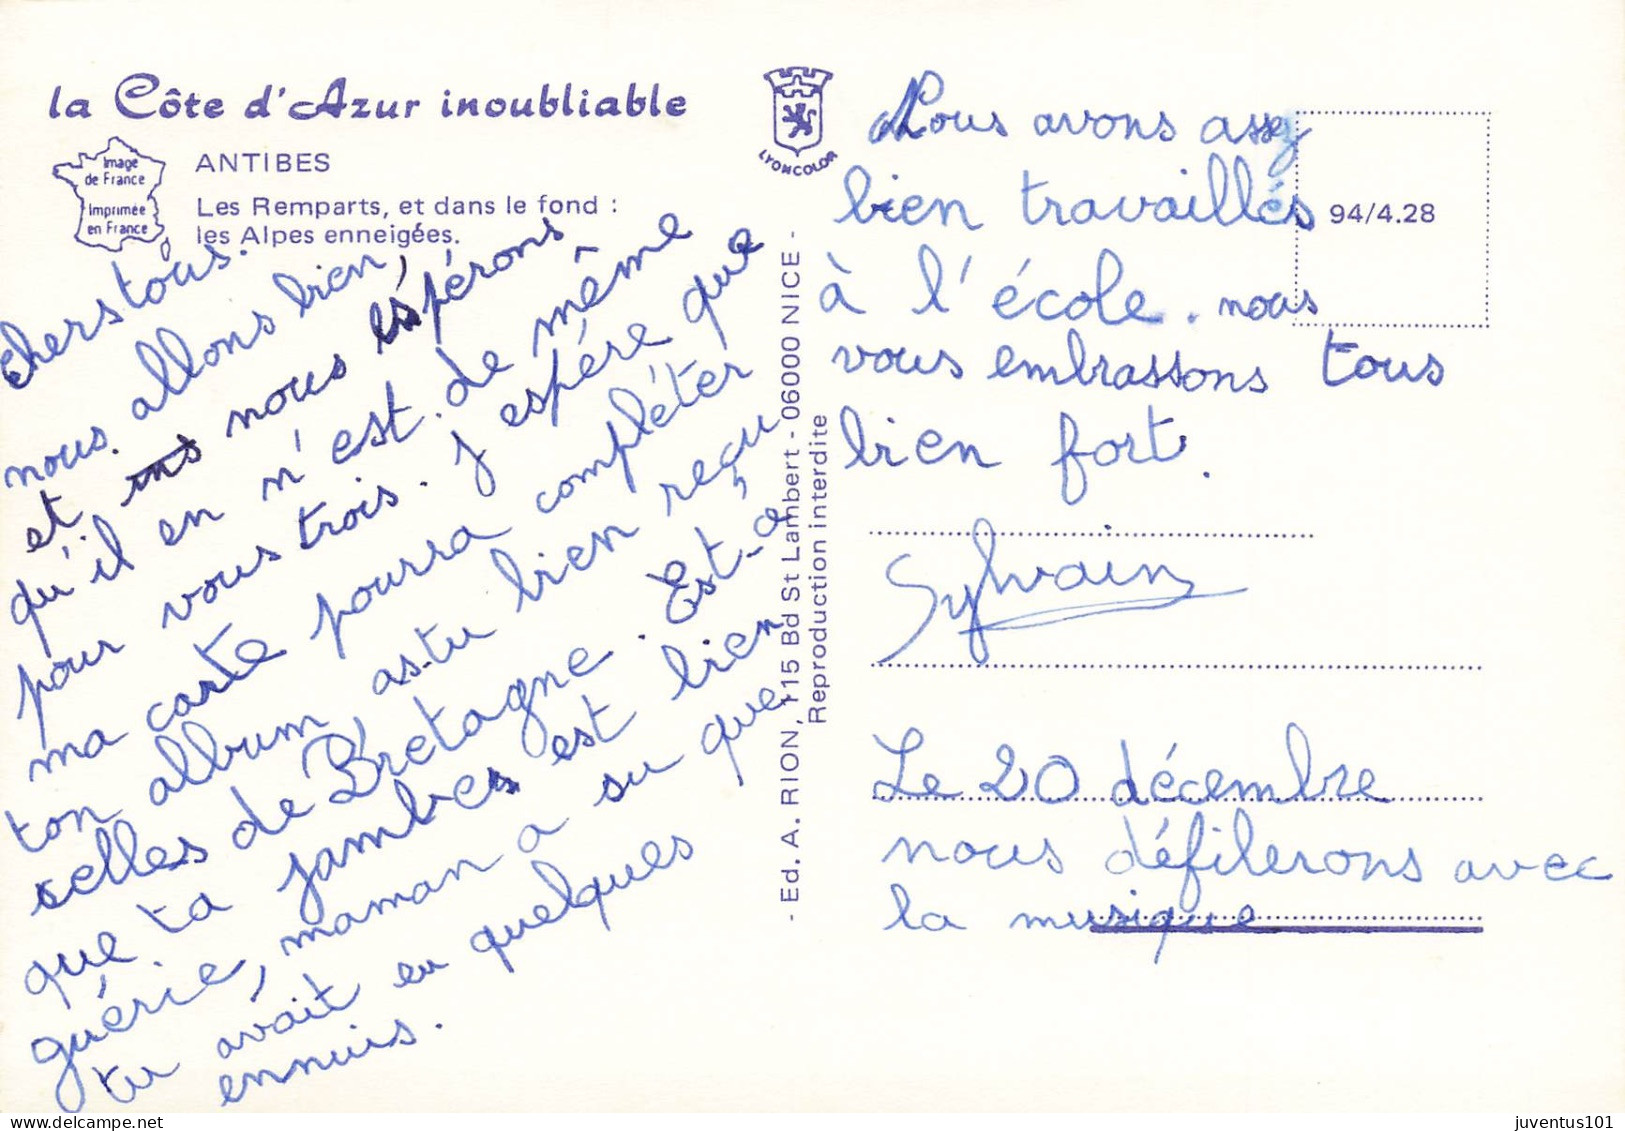 la Côte d'Azur inoubliable
Image
de France
Imprimée
en France
ANTIBES
Les Remparts, et dans le fond :
les Alpes enneigées.
LYONCOLOR
94/4.28
- Ed. A. RION, 115 Bd St Lambert - 06000 NICE -
Reproduction interdite
chers tous.
nous. allons bien,
et nous espérons
qu'il en n'est. de même
pour vous trois. j espére que
ma carte pourra compléter
ton album, as-tu bien reçu
celles de Bretagne. Est-a
que. ta jambes est bien
guérie, maman a su que
tu avait eu quelques
ennuis.
Nous avons assez
bien travaillés
à l'école. nous
vous embrassons tous
bien fort.
Sylvain
Le 20 décembre
nous défilerons avec
la musique
juventus101